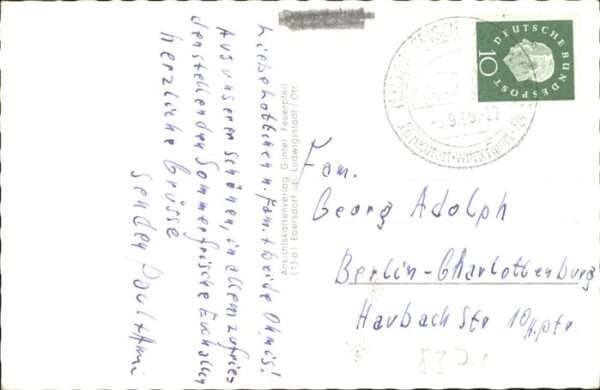 Liebe Lottchen u. Fam. + beide Omis!
Aus unserer schönen, in allem zufrie-
denstellenden Sommerfrische Euch allen
herzliche Grüsse
senden Paul + Anni
Ansichtskartenverlag Günter Feuerpfeil
(13a) Ebersdorf üb. Ludwigsstadt / Ofr.
DEUTSCHE BUNDESPOST
10
Fam.
Georg Adolph
Berlin-Charlottenburg
Haubach Str 10